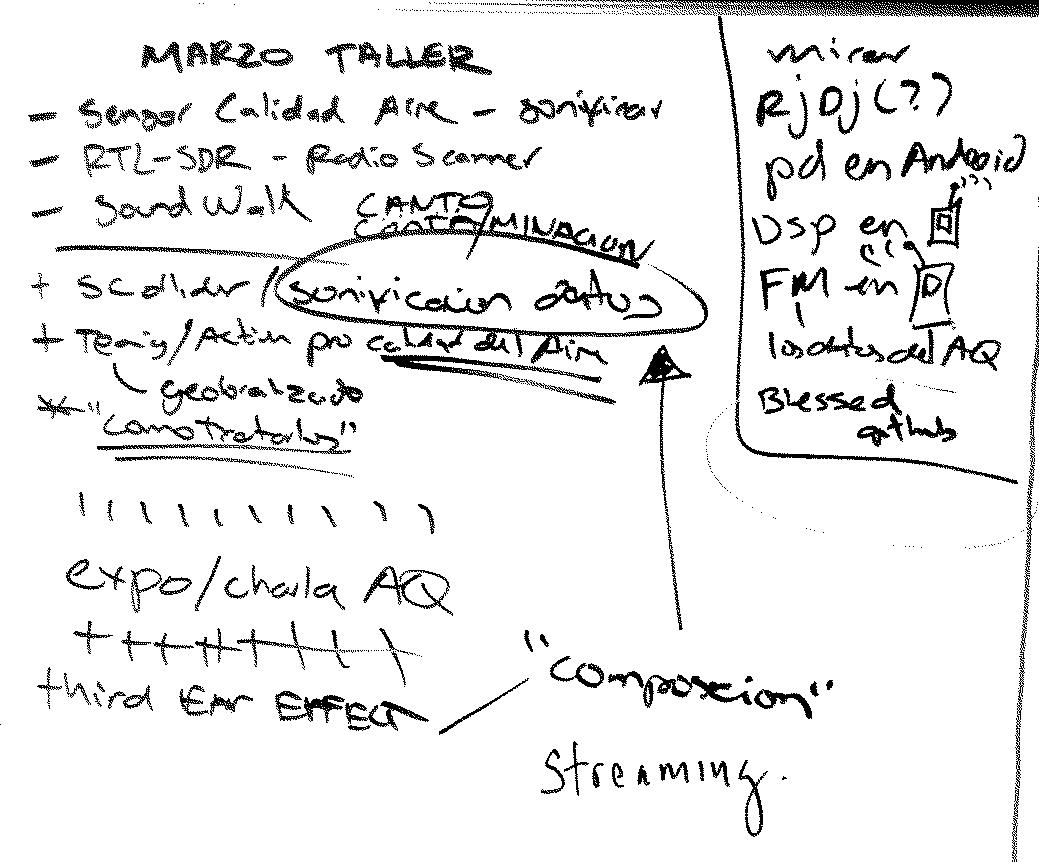 MARZO TALLER
- Sensor Calidad Aire - sonificar
- RTL-SDR - Radio Scanner
- Sound Walk
CANTO/
CONTAMINACION
+ scallider / sonificacion datos
+ /Action pro calidad del Aire
geobralizado
* "como tratarlos"
expo/charla AQ
third Ear EFFECT
"composicion"
streaming.
mirar
RjDj(??)
pd en Android
DSP en
FM en
los datos del AQ
Blessed
github